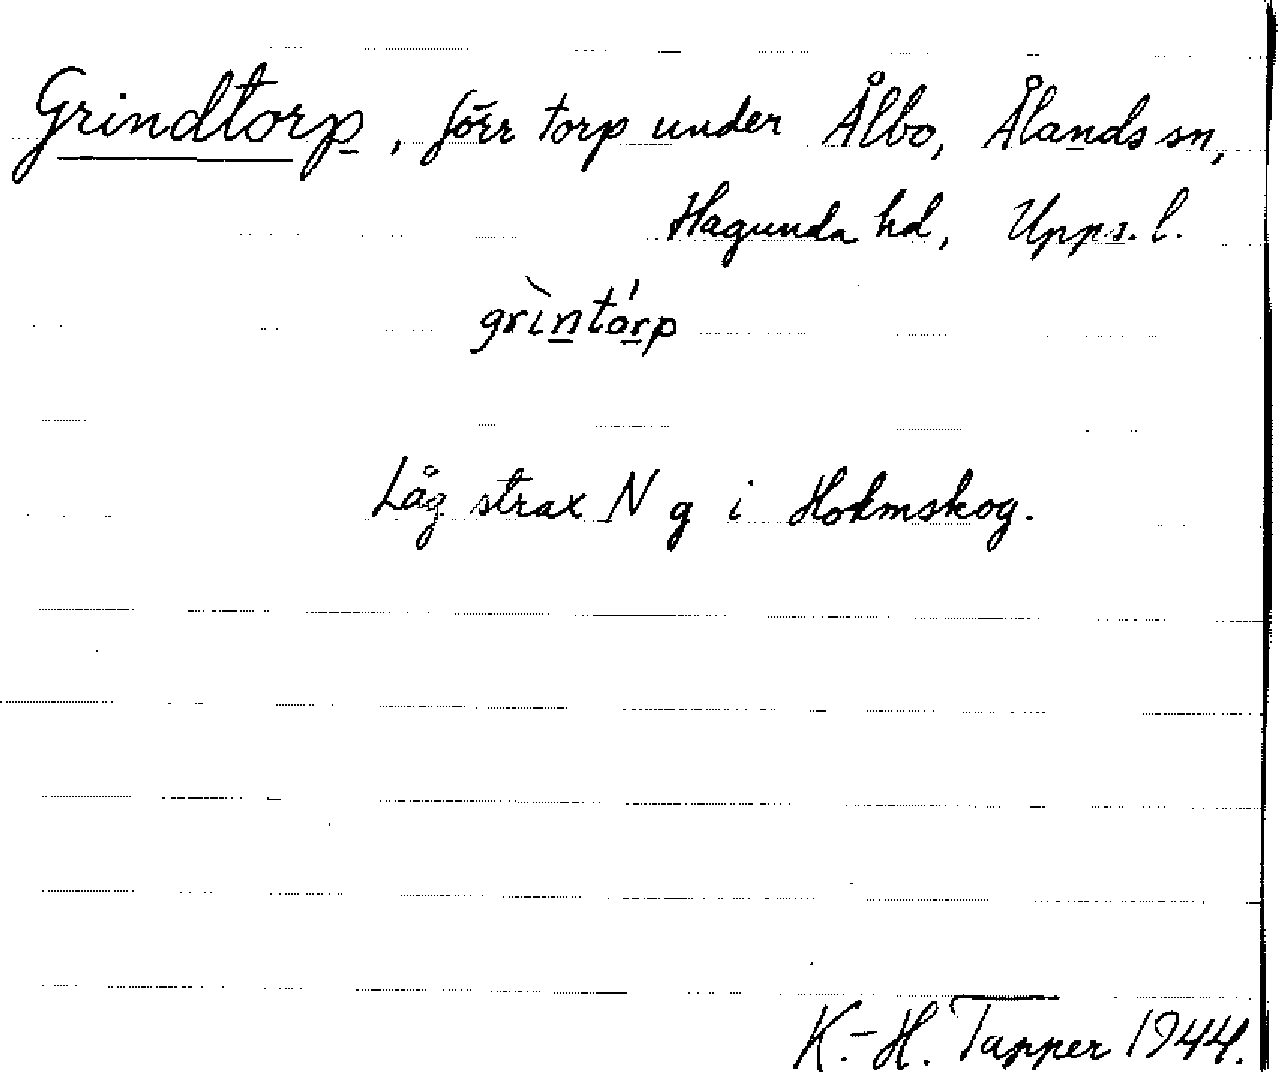 Grindtorp, förr torp under Ålbo, Ålands sn,
Hagunda hd, Upps. l.
grìntórp
Låg strax N g i Holmskog.
K.-H. Tapper 1944.